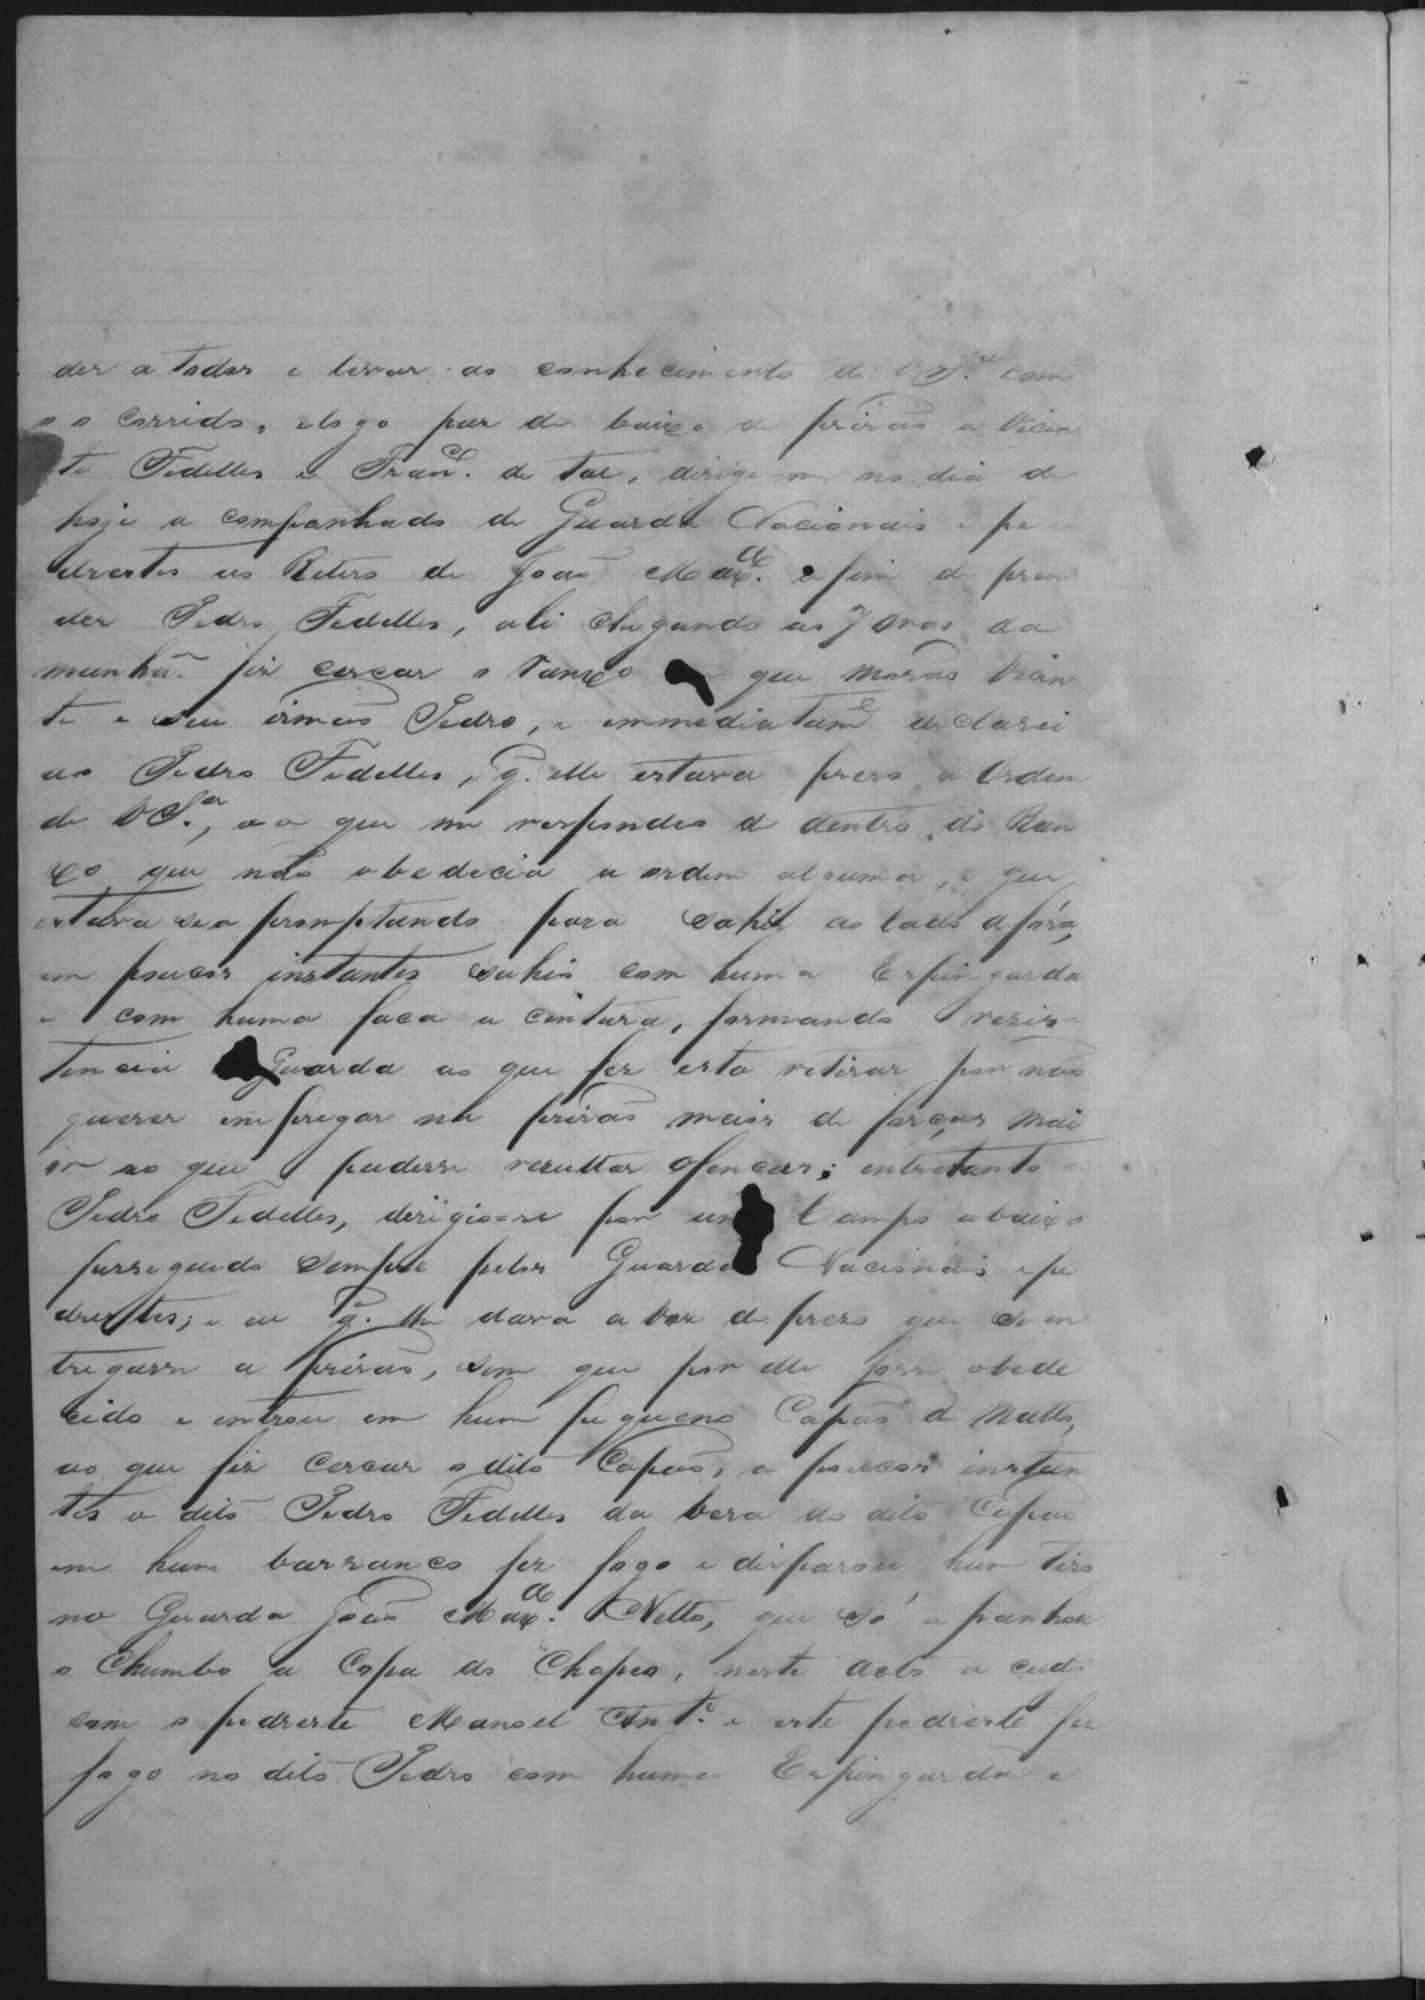 der a todos e levar ao conhecimento de VSª com
o o corrido, e logo puz de baixo de prizaõ a Vicen
te Fedelles e Franc.º de tal, dirigi-me no dia de
hoje a companhado de Guarda Nacionais e pe
drestes as Reters de Joaõ Maxª. a fim de pren
der Pedro Fedelles, ali chegando as 7 oras da
manhã fiz cercar o ranxo que moraõ Vicen
te e seu irmaõ Pedro, e immediatamᵉ declarei
ao Pedro Fedelles, q̃. elle estava prezo a Ordem
de VSª., ao que me respondeo de dentro do Ran
xo que naõ obedecia a ordem alguma, e que
estava se a promptando para sahir ao lado a fóra,
em poucos instantes sahio com huma Espingarda
e com huma faca a cintura, formando rezis=
tencia Guarda ao que fez esta retirar por naõ
querer empregar na prizaõ meios de forças mai
or ao que pudesse rezultar ofencas; entretanto=
Pedro Fedelles, dirigio=se por um Campo abaixo
perseguido sempre pelos Guardas Nacionais e pe
drestes; e eu q̃. lhe dava a voz de prezo que se en
tregasse a prizaõ, sem que por elle fosse obede
cido e entrou em hum pequeno Capaõ de Matto,
ao que fiz cercar o dito Capaõ, a poucos instan
tes o dito Pedro Fedelles da bera do dito Capaõ
em hum barranco fez fogo e disparou hum tiro
no Guarda Joaõ Maxª. Netto, que só a panhou
o Chumbo a Copa do Chapeo, neste acto a cudi
com o pedreste Manoel Antº. e este pedreste fez
fogo no dito Pedro com huma Espingarda e